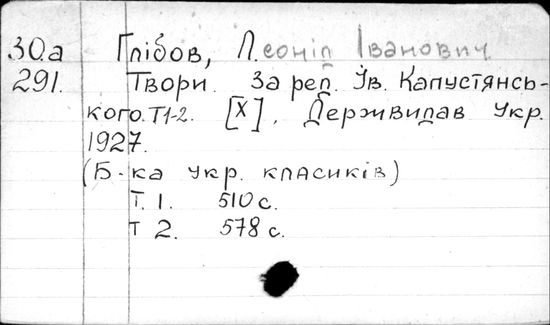 30.а Глібов, Леонід Іванович
291. Твори. За ред. Ів. Капустянсь-
кого. Т1-2. [Х]. Держвидав Укр.
1927.
(Б-ка укр. класиків)
Т. 1. 510 с.
т 2. 578 с.